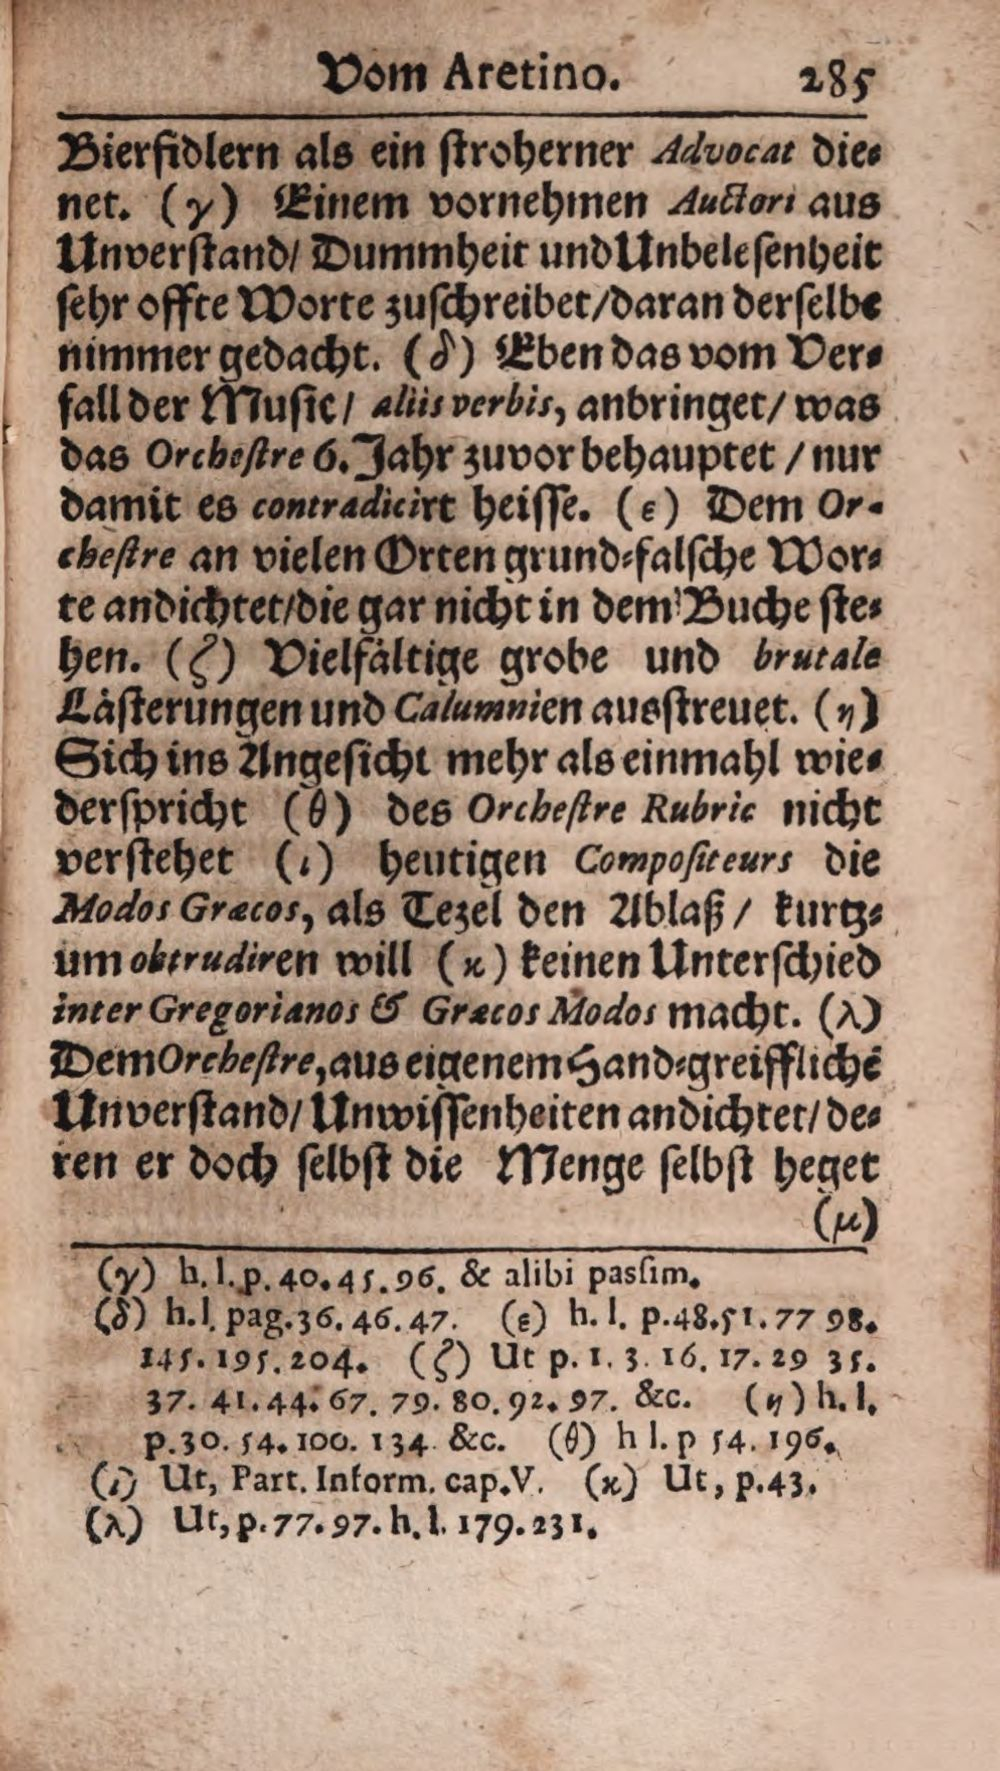 Vom Aretino. 285
Bierfidlern als ein stroherner Advocat die-
net. (γ) Einem vornehmen Auctori aus
Unverstand/ Dummheit und Unbelesenheit
sehr offte Worte zuschreibet/daran derselbe
nimmer gedacht. (δ) Eben das vom Ver-
fall der Music/ aliis verbis, anbringet/ was
das Orchestre 6. Jahr zuvor behauptet / nur
damit es contradicirt heisse. (ε) Dem Or-
chestre an vielen Orten grund-falsche Wor-
te andichtet/die gar nicht in dem Buche ste-
hen. (ζ) Vielfältige grobe und brutale
Lästerungen und Calumnien ausstreuet. (η)
Sich ins Angesicht mehr als einmahl wie-
derspricht (θ) des Orchestre Rubric nicht
verstehet (ι) heutigen Compositeurs die
Modos Græcos, als Tezel den Ablaß / kurtz-
um obtrudiren will (ϰ) keinen Unterschied
inter Gregorianos & Græcos Modos macht. (λ)
Dem Orchestre, aus eigenem Hand-greiffliche̅
Unverstand/ Unwissenheiten andichtet/ de-
ren er doch selbst die Menge selbst heget
(μ)
(γ) h. l. p. 40. 45. 96. & alibi passim.
(δ) h. l. pag. 36. 46. 47. (ε) h. l. p. 48. 51. 77 98.
145. 195. 204. (ζ) Ut p. 1. 3. 16. 17. 29 35.
37. 41. 44. 67. 79. 80. 92. 97. &c. (η) h. l.
p. 30. 54. 100. 134. &c. (θ) h l. p 54. 196.
(ι) Ut, Part. Inform. cap. V. (ϰ) Ut, p. 43.
(λ) Ut, p. 77. 97. h. l. 179. 231.